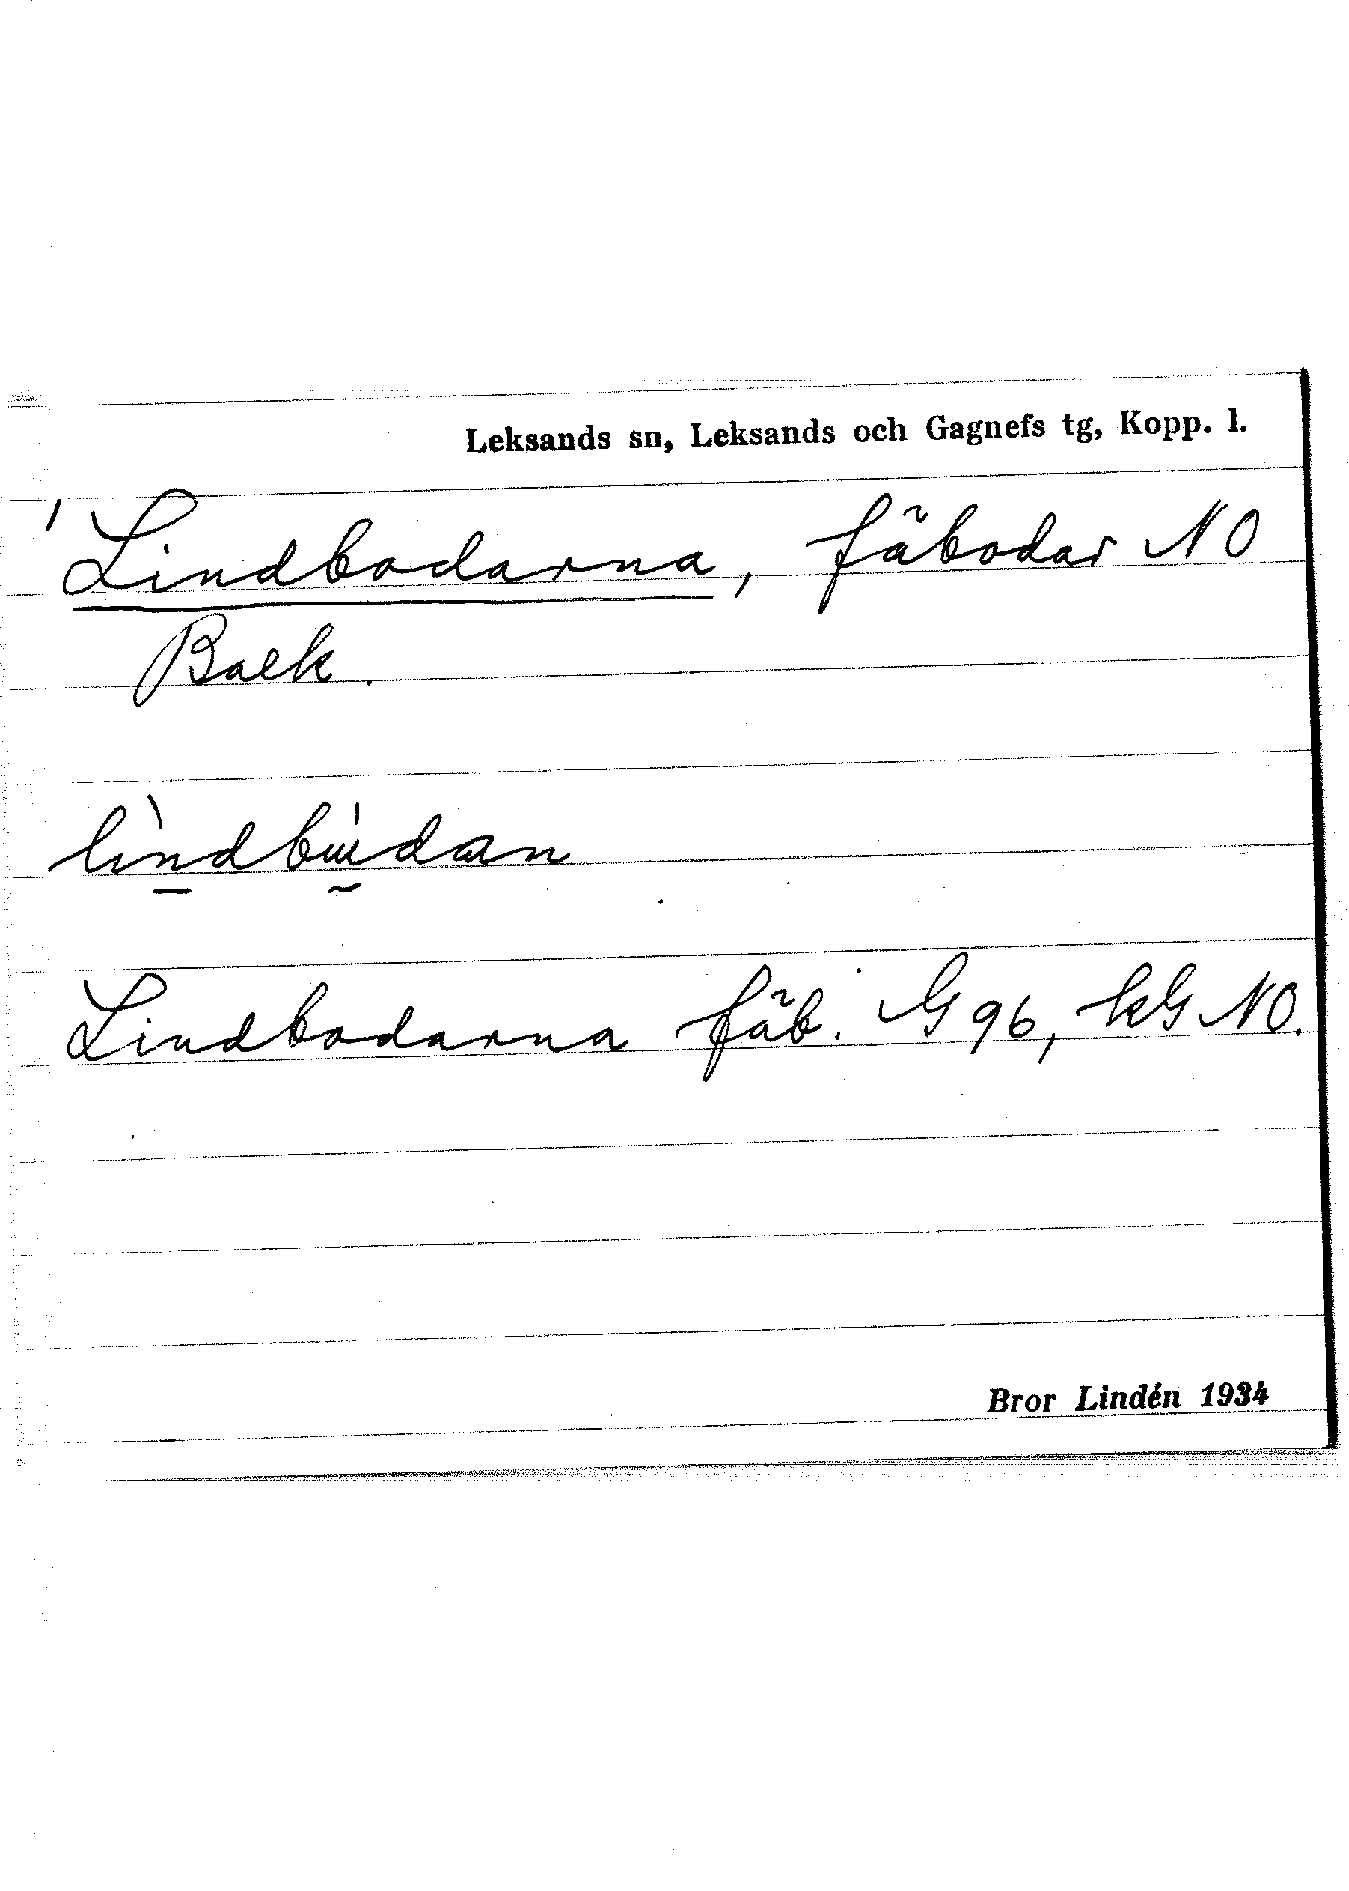 Leksands sn, Leksands och Gagnefs tg, Kopp. l.
Lindbodarna, fäbodar NO
Baek.
Lindbodarna fäb. G 96, kG NO.
Bror Lindén 1934